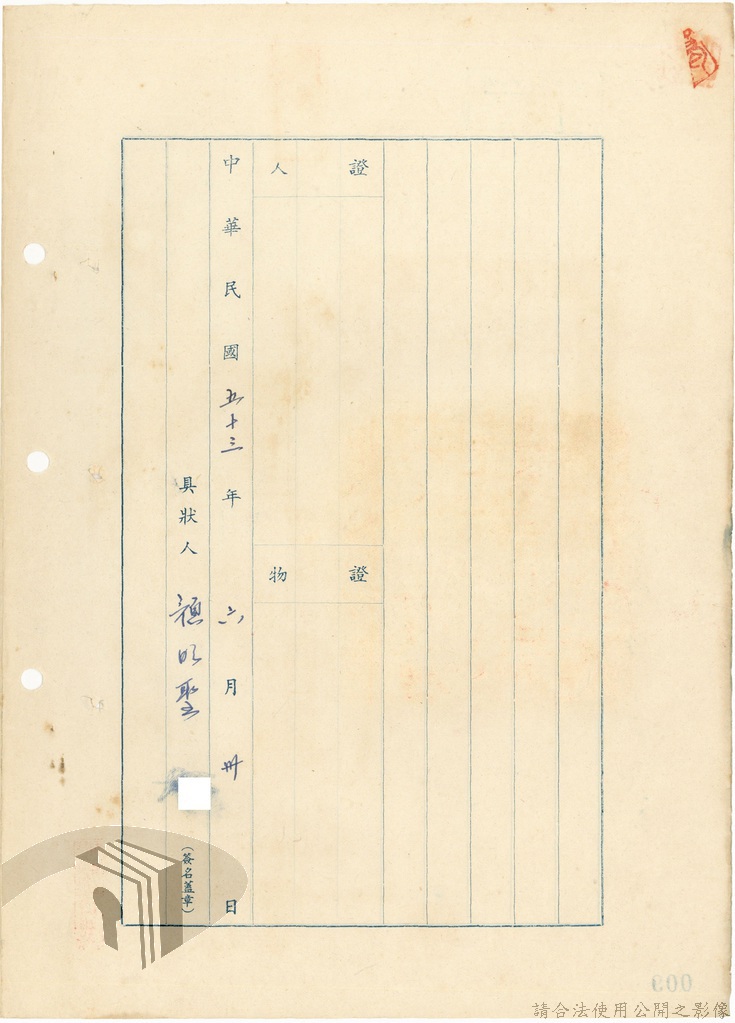 證人
證物
中華民國五十三年六月卅日
具狀人 顏明聖 (簽名蓋章)
請合法使用公開之影像